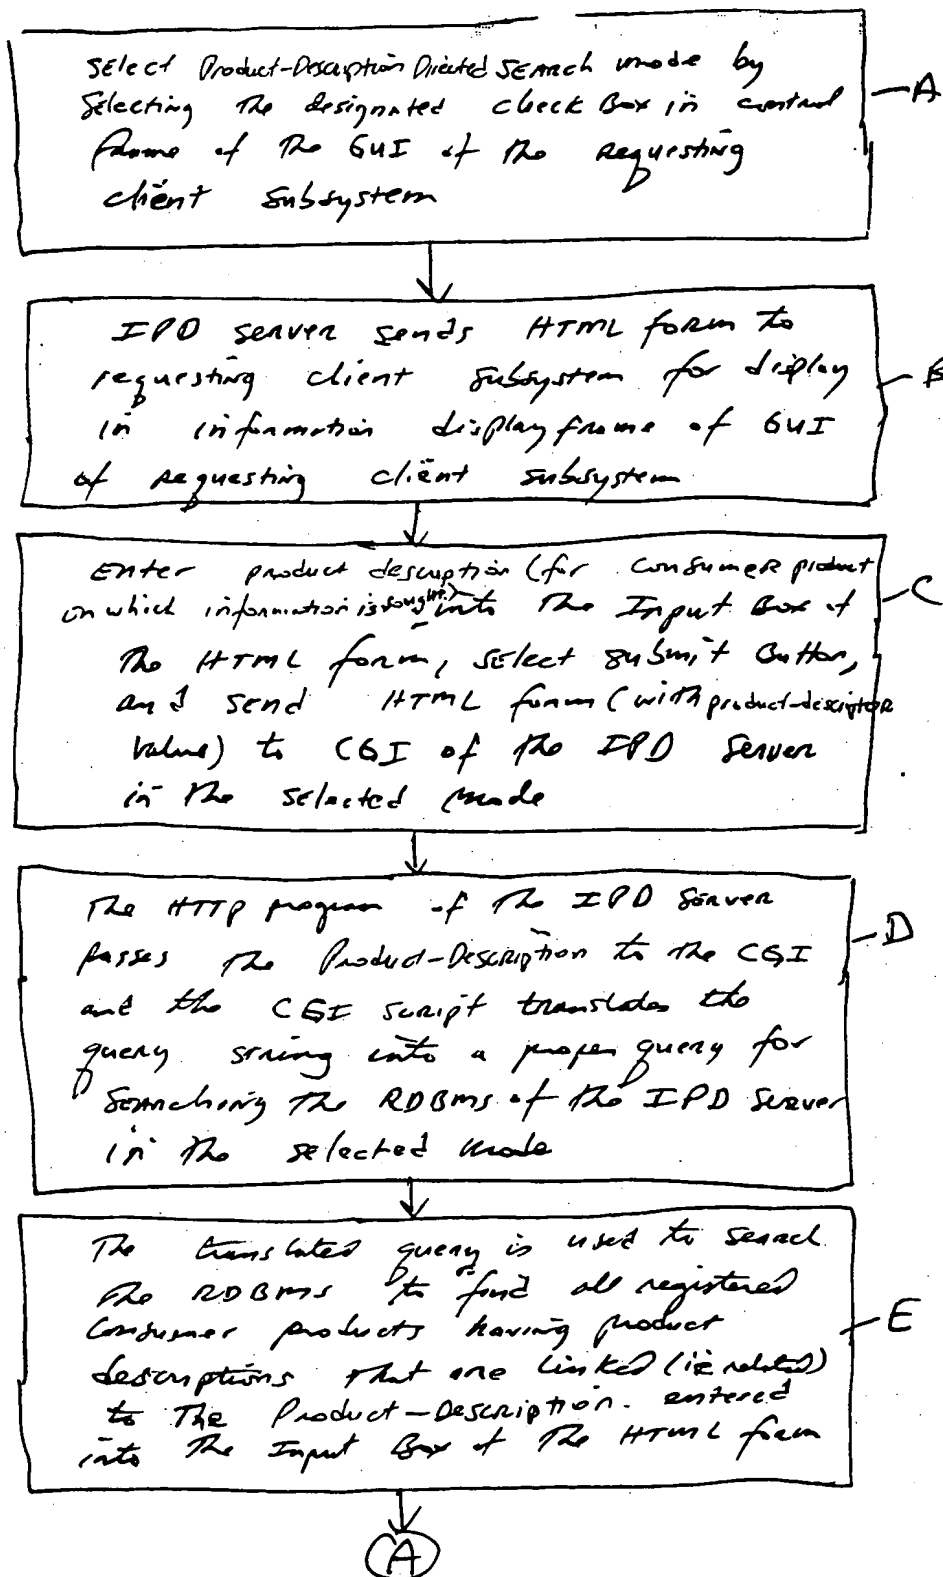 Select Product-Description Directed Search mode by
Selecting The designated check Box in control
frame of The GUI of the requesting
client Subsystem
A
IPD server sends HTML form to
requesting client subsystem for display
in information display frame of GUI
of requesting client subsystem
B
Enter product description (for consumer product
on which information is sought) into The Input Box of
The HTML form, select submit Button,
and send HTML form (with product-descriptor
value) to CGI of the IPD Server
in The selected mode
C
The HTTP program of The IPD Server
passes The Product-Description to the CGI
and the CGI script translates the
query string into a proper query for
Searching The RDBMS of the IPD Server
in The selected mode
D
The translated query is used to search
The RDBMS to find all registered
Consumer products having product
descriptions that are linked (ie related)
to The Product-Description. entered
into The Input Box of The HTML form
E
A